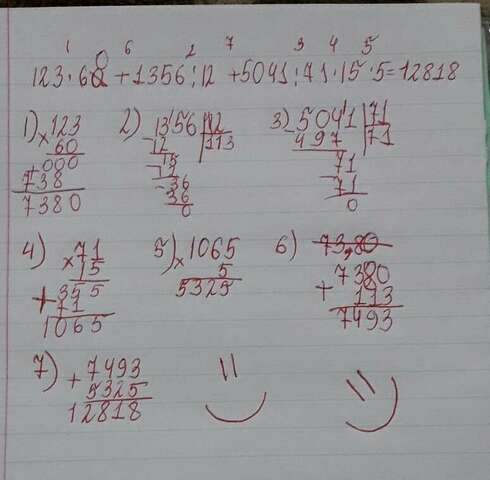 1 6 2 7 3 4 5
123·60+1356:12+5041:71·15·5=12818
1) ×123
60
+000
738
7380
2) -1356|12
12 113
-15
12
-36
36
0
3) -5041|71
497 71
-71
71
0
4) ×71
15
+355
71
1065
5) ×1065
5
5325
6) 73,80
7380
+113
7493
7) +7493
5325
12818